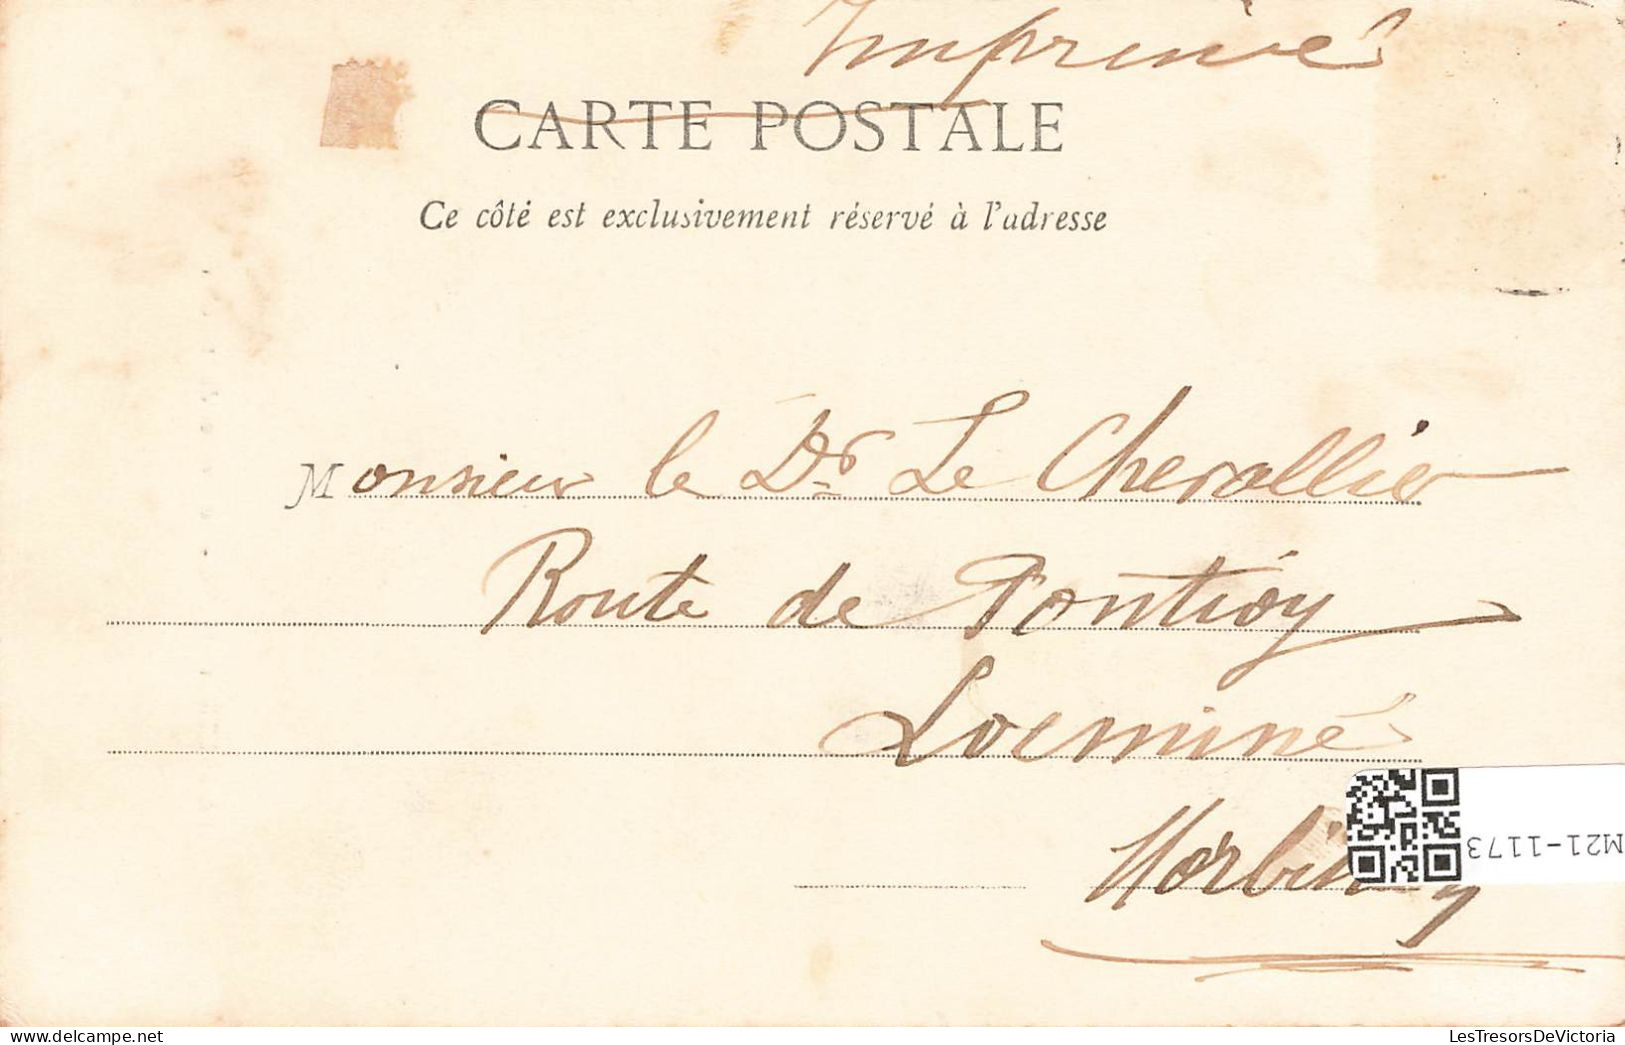 Imprimé
CARTE POSTALE
Ce côté est exclusivement réservé à l'adresse
Monsieur le Dr Le Chevallier
Route de Pontivy
Locminé
Morbihan
M21-1173
LesTresorsDeVictoria